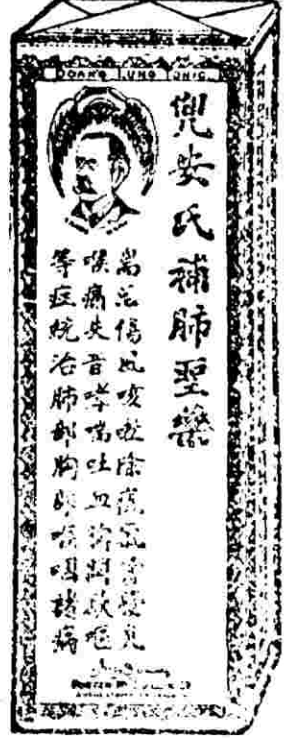 DOAN'S LUNG TONIC.
兜安氏補肺聖藥
耑治傷風咳嗽除痰氣管發炎
喉痛失音哮喘吐血
等症統治肺部胸部喉咽諸病